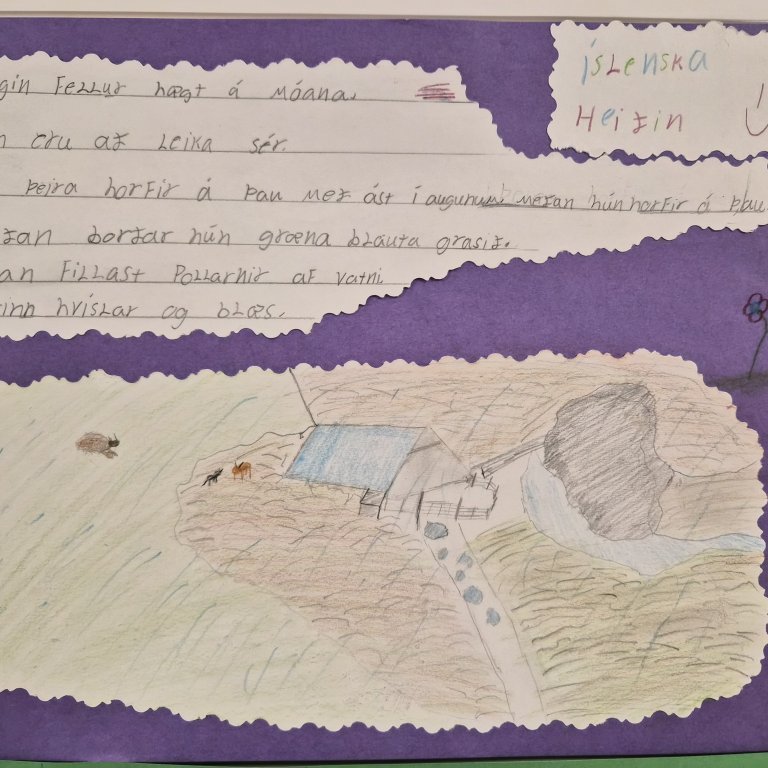 íslenska
Heiðin
gin Fellur hægt á Móana.
n eru að Leika sér.
þeira horfir á þau með ást í augunum meðan hún horfir á þau
ðan borðar hún græna blauta grasið.
an Fillast Pollarnir af vatni
inn hvíslar og blæs.